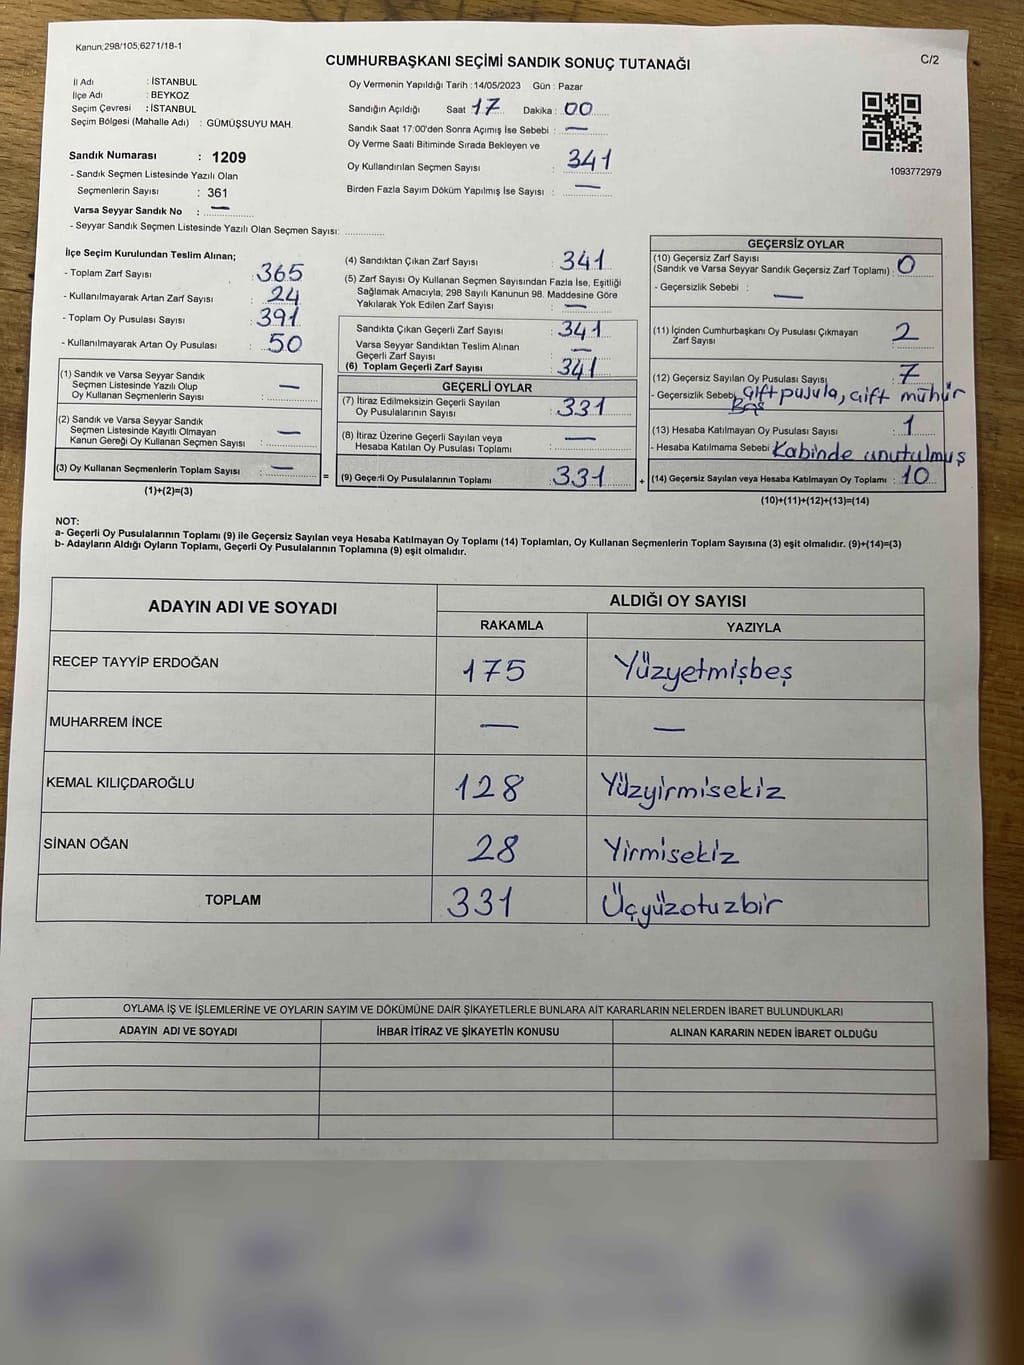 Kanun;298/105,6271/18-1
C/2
CUMHURBAŞKANI SEÇİMİ SANDIK SONUÇ TUTANAĞI
İl Adı : İSTANBUL
İlçe Adı : BEYKOZ
Seçim Çevresi : İSTANBUL
Seçim Bölgesi (Mahalle Adı) : GÜMÜŞSUYU MAH.
Sandık Numarası : 1209
- Sandık Seçmen Listesinde Yazılı Olan
Seçmenlerin Sayısı : 361
Varsa Seyyar Sandık No : —
- Seyyar Sandık Seçmen Listesinde Yazılı Olan Seçmen Sayısı:
Oy Vermenin Yapıldığı Tarih : 14/05/2023 Gün : Pazar
Sandığın Açıldığı Saat 17 Dakika : 00
Sandık Saat 17:00'den Sonra Açımış İse Sebebi : —
Oy Verme Saati Bitiminde Sırada Bekleyen ve
Oy Kullandırılan Seçmen Sayısı : 341
Birden Fazla Sayım Döküm Yapılmış İse Sayısı : —
1093772979
İlçe Seçim Kurulundan Teslim Alınan;
- Toplam Zarf Sayısı : 365
- Kullanılmayarak Artan Zarf Sayısı : 24
- Toplam Oy Pusulası Sayısı : 391
- Kullanılmayarak Artan Oy Pusulası : 50
(1) Sandık ve Varsa Seyyar Sandık
Seçmen Listesinde Yazılı Olup
Oy Kullanan Seçmenlerin Sayısı : —
(2) Sandık ve Varsa Seyyar Sandık
Seçmen Listesinde Kayıtlı Olmayan
Kanun Gereği Oy Kullanan Seçmen Sayısı : —
(3) Oy Kullanan Seçmenlerin Toplam Sayısı : —
(1)+(2)=(3)
=
(4) Sandıktan Çıkan Zarf Sayısı : 341
(5) Zarf Sayısı Oy Kullanan Seçmen Sayısından Fazla İse, Eşitliği
Sağlamak Amacıyla; 298 Sayılı Kanunun 98. Maddesine Göre
Yakılarak Yok Edilen Zarf Sayısı : —
Sandıkta Çıkan Geçerli Zarf Sayısı : 341
Varsa Seyyar Sandıktan Teslim Alınan
Geçerli Zarf Sayısı : —
(6) Toplam Geçerli Zarf Sayısı : 341
GEÇERLİ OYLAR
(7) İtiraz Edilmeksizin Geçerli Sayılan
Oy Pusulalarının Sayısı : 331
(8) İtiraz Üzerine Geçerli Sayılan veya
Hesaba Katılan Oy Pusulası Toplamı : —
(9) Geçerli Oy Pusulalarının Toplamı : 331
+
GEÇERSİZ OYLAR
(10) Geçersiz Zarf Sayısı
(Sandık ve Varsa Seyyar Sandık Geçersiz Zarf Toplamı) : 0
- Geçersizlik Sebebi : —
(11) İçinden Cumhurbaşkanı Oy Pusulası Çıkmayan
Zarf Sayısı : 2
(12) Geçersiz Sayılan Oy Pusulası Sayısı : 7
- Geçersizlik Sebebi Çift pusula, çift mühür
Boş
(13) Hesaba Katılmayan Oy Pusulası Sayısı : 1
- Hesaba Katılmama Sebebi Kabinde unutulmuş
(14) Geçersiz Sayılan veya Hesaba Katılmayan Oy Toplamı : 10
(10)+(11)+(12)+(13)=(14)
NOT:
a- Geçerli Oy Pusulalarının Toplamı (9) ile Geçersiz Sayılan veya Hesaba Katılmayan Oy Toplamı (14) Toplamları, Oy Kullanan Seçmenlerin Toplam Sayısına (3) eşit olmalıdır. (9)+(14)=(3)
b- Adayların Aldığı Oyların Toplamı, Geçerli Oy Pusulalarının Toplamına (9) eşit olmalıdır.
ADAYIN ADI VE SOYADI ALDIĞI OY SAYISI
RAKAMLA YAZIYLA
RECEP TAYYİP ERDOĞAN 175 Yüzyetmişbeş
MUHARREM İNCE — —
KEMAL KILIÇDAROĞLU 128 Yüzyirmisekiz
SİNAN OĞAN 28 Yirmisekiz
TOPLAM 331 Üçyüzotuzbir
OYLAMA İŞ VE İŞLEMLERİNE VE OYLARIN SAYIM VE DÖKÜMÜNE DAİR ŞİKAYETLERLE BUNLARA AİT KARARLARIN NELERDEN İBARET BULUNDUKLARI
ADAYIN ADI VE SOYADI İHBAR İTİRAZ VE ŞİKAYETİN KONUSU ALINAN KARARIN NEDEN İBARET OLDUĞU